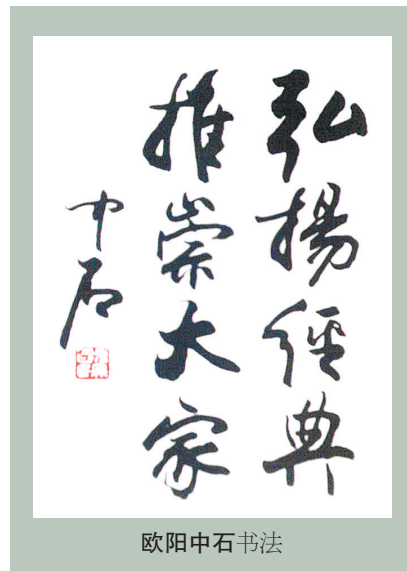 弘揚經典
推崇大家
中石
欧阳中石书法